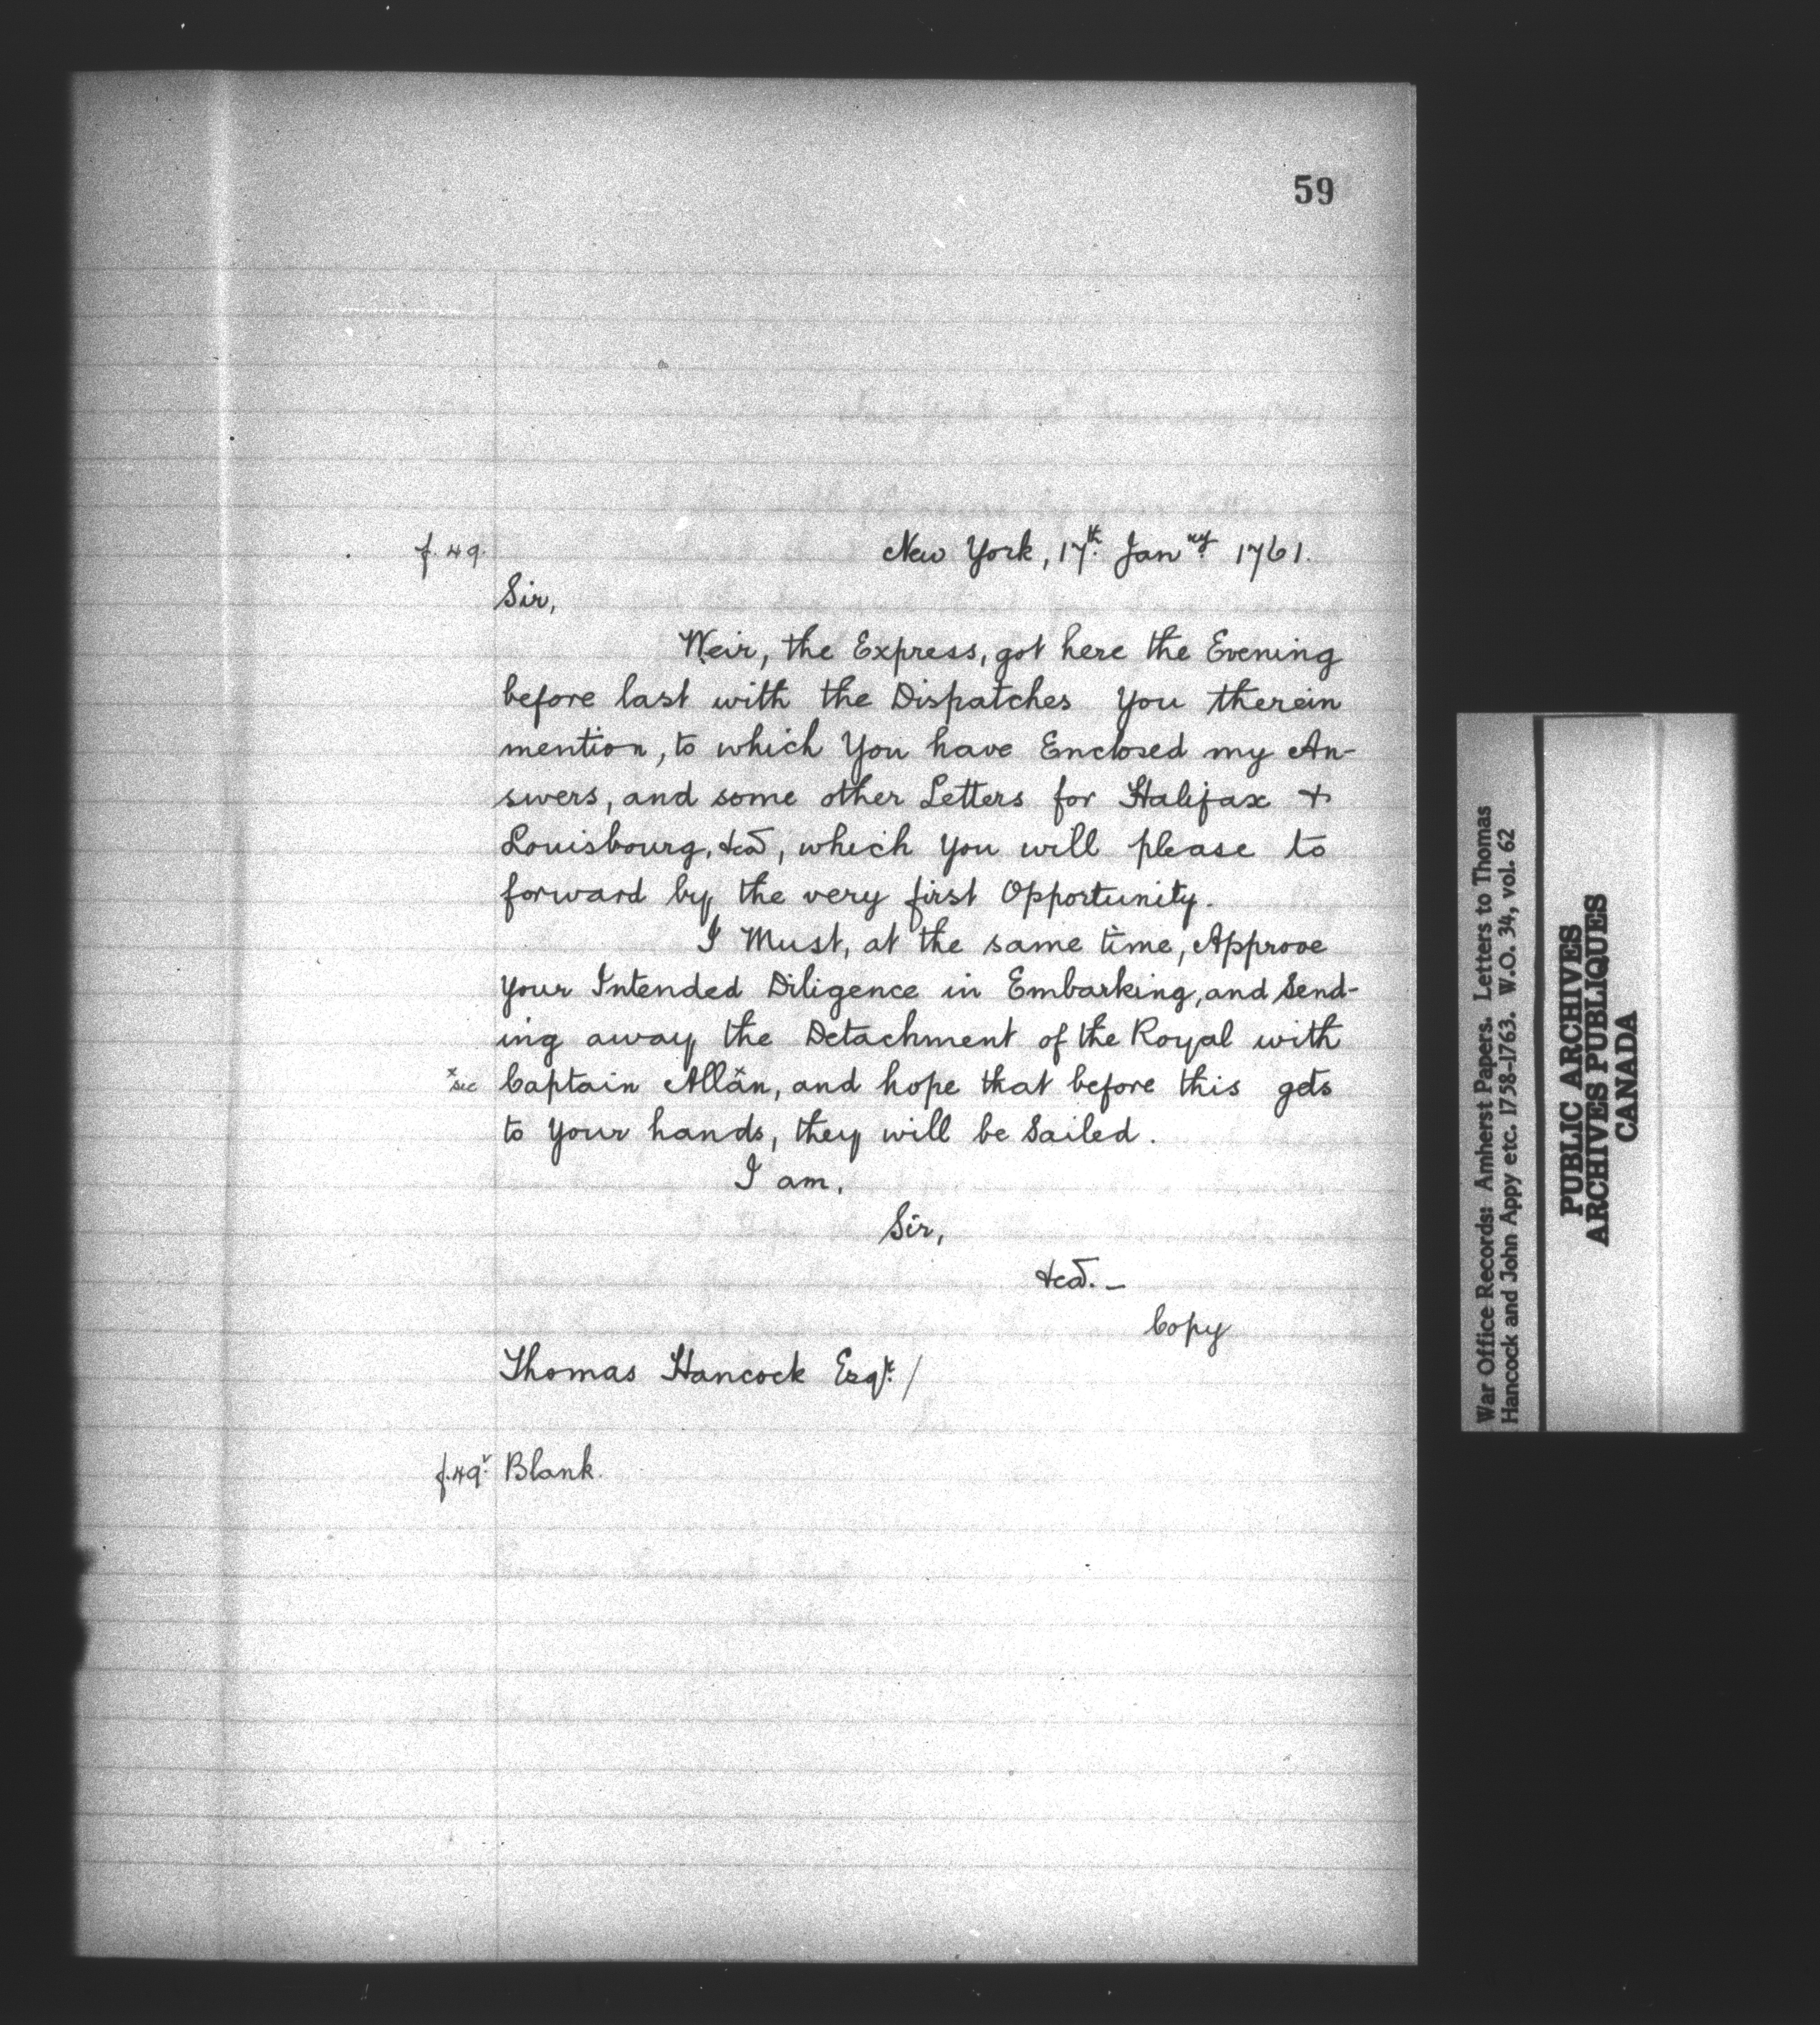 59
f. 49.
New York, 17th. Janry. 1761.
Sir,
Weir, the Express, got here the Evening
before last with the Dispatches You therein
mention, to which You have Enclosed my An-
swers, and some other Letters for Halifax &
Louisbourg, &ca, which You will please to
forward by the very first Opportunity.
I Must, at the same time, Approve
Your Intended Diligence in Embarking, and Send-
ing away the Detachment of the Royal with
x sic Captain Allxan, and hope that before this gets
to Your hands, they will be Sailed.
I am,
Sir,
&ca. —
Copy
Thomas Hancock Esqr. /
f. 49v. Blank.
War Office Records: Amherst Papers. Letters to Thomas
Hancock and John Appy etc. 1758-1763. W.O. 34, vol. 62
PUBLIC ARCHIVES
ARCHIVES PUBLIQUES
CANADA